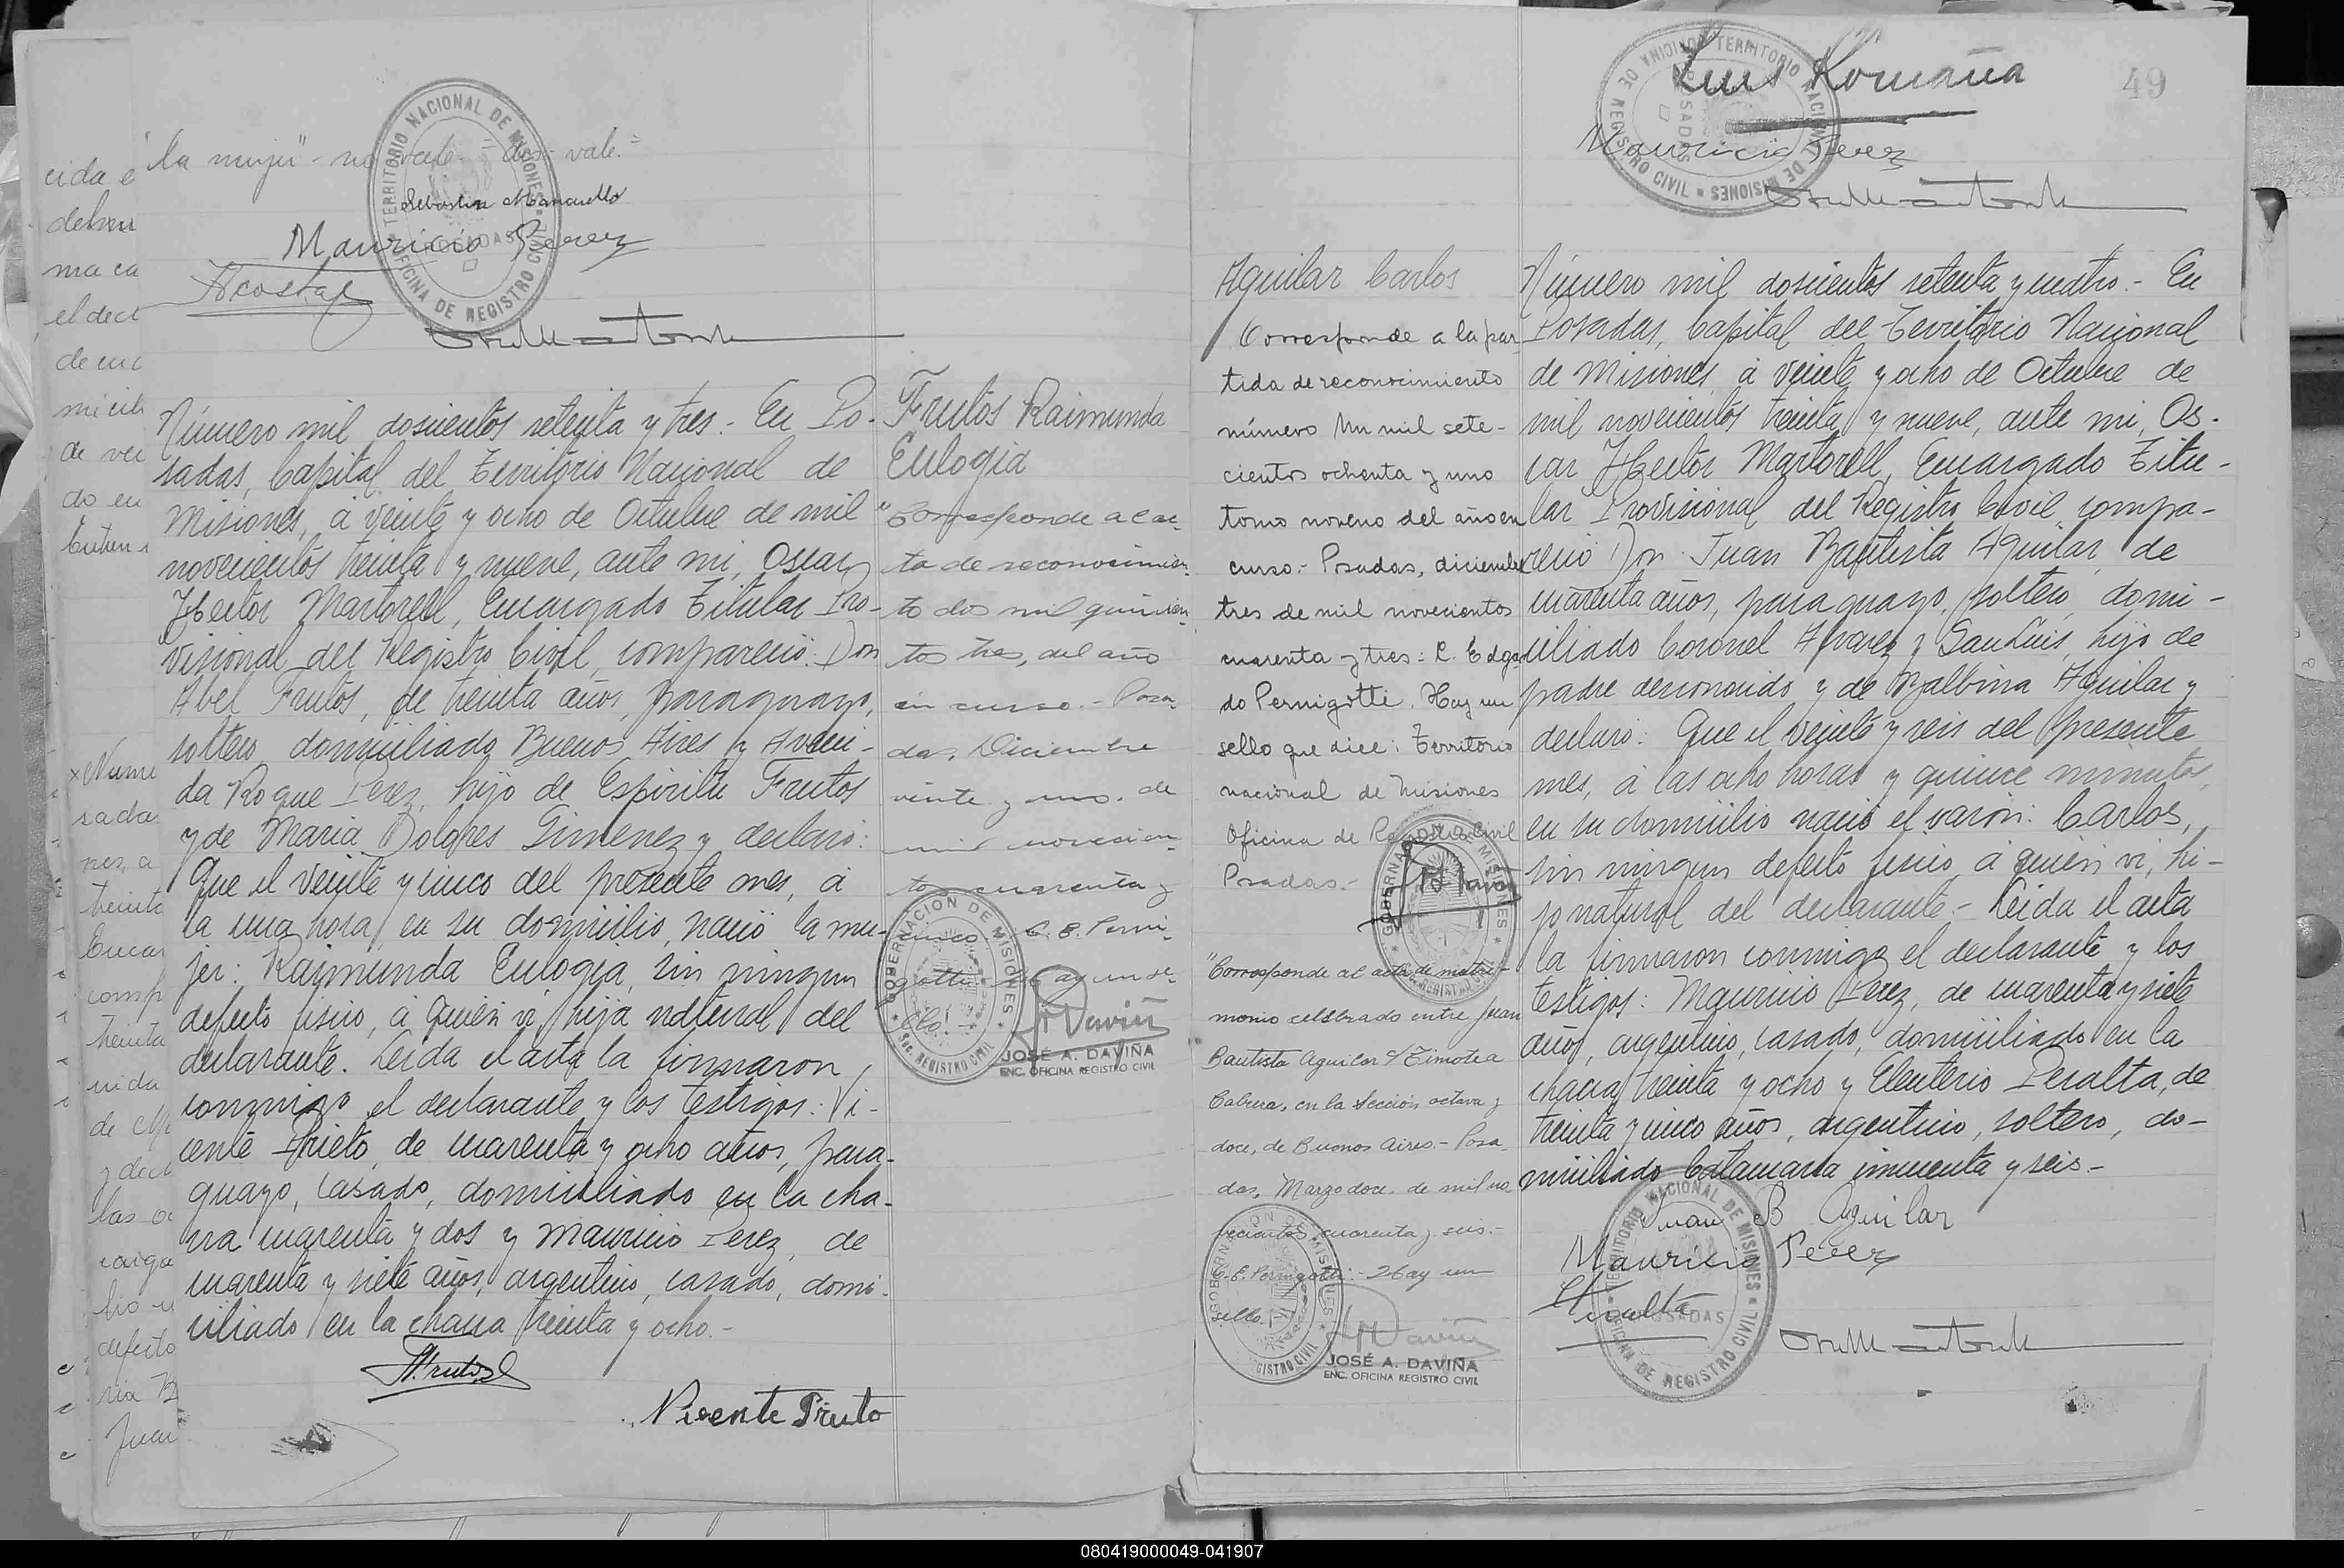 "la mujer" - no vale - dos - vale.=
Sebastian Mancuello
Mauricio Perez
Acosta
TERRITORIO NACIONAL DE MISIONES
OFICINA DE REGISTRO CIVIL
POSADAS
Número mil doscientos setenta y tres.- En Po-
sadas, Capital del Territorio Nacional de
Misiones, á veinte y ocho de Octubre de mil
novecientos treinta y nueve, ante mi, Oscar
Hector Martorell, Encargado Titular Pro-
visional del Registro Civil, compareció: Don
Abel Frutos, de treinta años, paraguayo,
soltero, domiciliado Buenos Aires y Aveni-
da Roque Perez, hijo de Espiritu Frutos
y de Maria Dolores Gimenez y declaró:
Que el veinte y cinco del presente mes, á
la una hora, en su domicilio, nació la mu-
jer: Raimunda Eulogia, sin ningun
defecto fisico, á quién vi, hija natural del
declarante. Leida el acta la firmaron
conmigo el declarante y los testigos: Vi-
cente Prieto, de cuarenta y ocho años, para-
guayo, casado, domiciliado en la cha-
cra cuarenta y dos y Mauricio Perez, de
cuarenta y siete años, argentino, casado, domi-
ciliado en la chacra treinta y ocho.-
A. Frutos
Vicente Prieto
Frutos Raimunda
Eulogia
"Corresponde al ac-
ta de reconocimien-
to dos mil quinien-
tos tres, del año
en curso.- Posa-
das, Diciembre
veinte y uno, de
mil novecien-
tos cuarenta y
cinco. C. E. Perni-
gotti. Hay un se-
llo.-
GOBERNACION DE MISIONES
SEC. REGISTRO CIVIL
JOSÉ A. DAVIÑA
ENC. OFICINA REGISTRO CIVIL
49
Luis Romaña
Mauricio Perez
TERRITORIO NACIONAL DE MISIONES
OFICINA DE REGISTRO CIVIL
POSADAS
Aguilar Carlos
Corresponde a la par-
tida de reconocimiento
número Un mil sete-
cientos ochenta y uno
tomo noveno del año en
curso.- Posadas, diciembre
tres de mil novecientos
cuarenta y tres: C. Edgar-
do Pernigotti. Hay un
sello que dice: Territorio
nacional de Misiones
Oficina de Registro Civil
Posadas.-
GOBERNACION DE MISIONES
"Corresponde al acta de matri-
monio celebrado entre Juan
Bautista Aguilar y Timotea
Cabrera, en la Sección octava y
doce, de Buenos Aires.- Posa-
das, Marzo doce de mil no-
vecientos cuarenta y seis.-
C. E. Pernigotti.- Hay un
sello.
JOSÉ A. DAVIÑA
ENC. OFICINA REGISTRO CIVIL
Número mil doscientos setenta y cuatro.- En
Posadas, Capital del Territorio Nacional
de Misiones, á veinte y ocho de Octubre de
mil novecientos treinta y nueve, ante mi, Os-
car Hector Martorell, Encargado Titu-
lar Provisional del Registro Civil, compa-
reció Don Juan Bautista Aguilar, de
cuarenta años, paraguayo, soltero, domi-
ciliado Coronel Alvarez y San Luis, hijo de
padre desconocido y de Balbina Aguilar y
declaró: Que el veinte y seis del presente
mes, á las ocho horas y quince minutos,
en su domicilio nació el varón: Carlos,
sin ningun defecto fisico, á quién vi, hi-
jo natural del declarante.- Leida el acta
la firmaron conmigo el declarante y los
testigos: Mauricio Perez, de cuarenta y siete
años, argentino, casado, domiciliado en la
chacra treinta y ocho y Eleuterio Peralta, de
treinta y cinco años, argentino, soltero, do-
miciliado Catamarca cincuenta y seis.-
Juan B Aguilar
Mauricio Perez
TERRITORIO NACIONAL DE MISIONES
OFICINA DE REGISTRO CIVIL
POSADAS
080419000049-041907